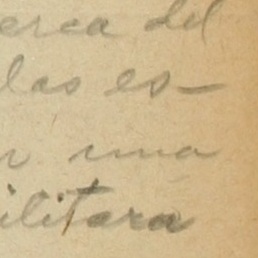 erca del
las es-
n una
ilitara